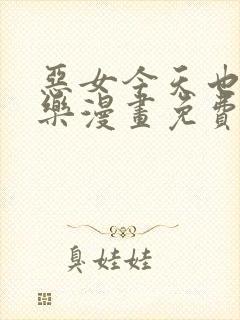 惡女今天也
樂漫畫免費
臭娃娃